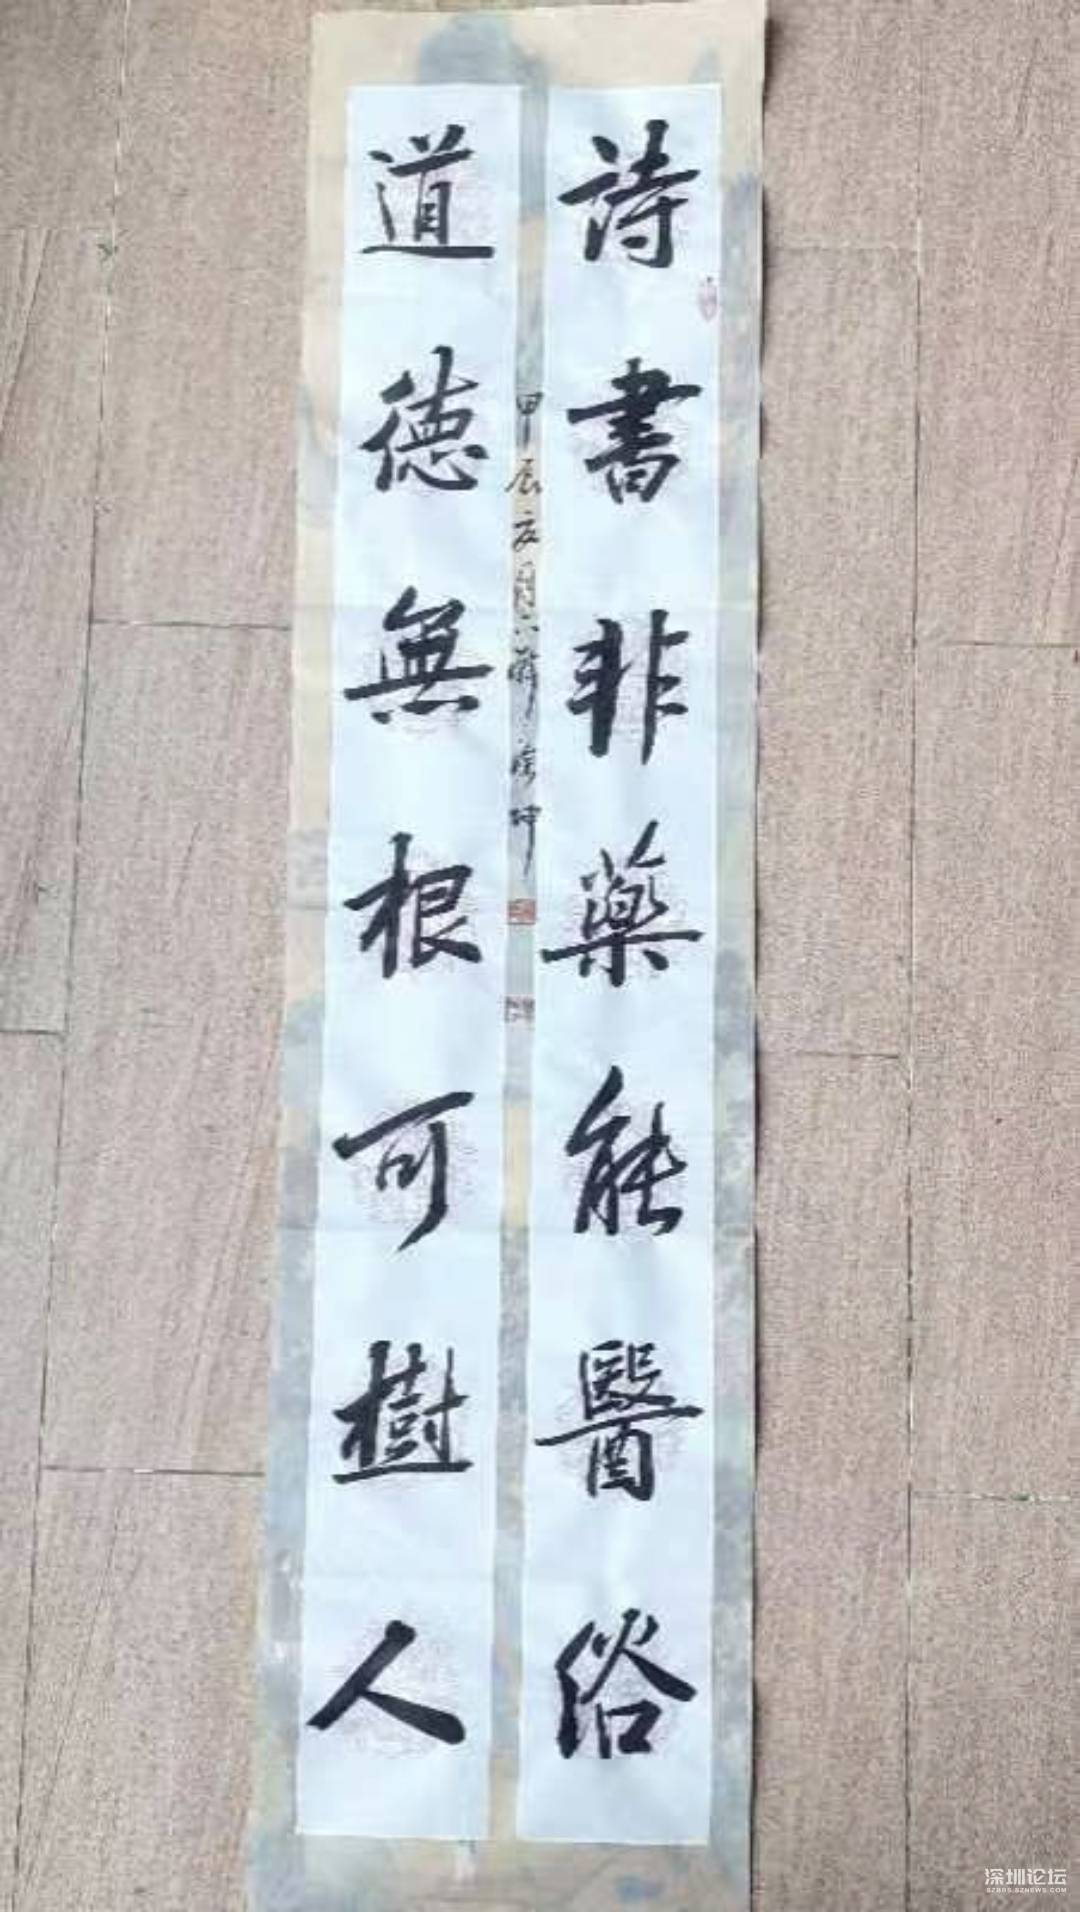 詩書非藥能醫俗
道德無根可樹人
甲辰 月 坤
深圳论坛
SZBBS.SZNEWS.COM